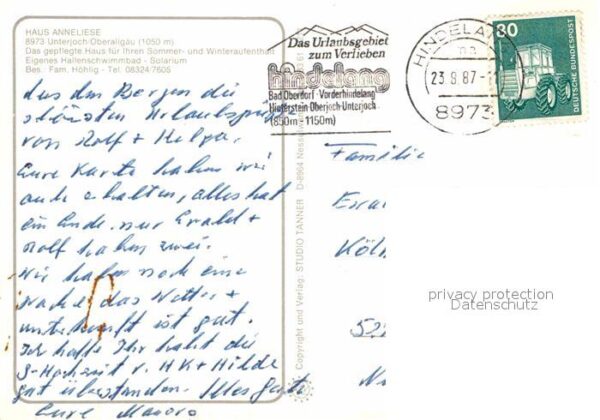 HAUS ANNELIESE
8973 Unterjoch-Oberallgäu (1050 m)
Das gepflegte Haus für Ihren Sommer- und Winteraufenthalt
Eigenes Hallenschwimmbad - Solarium
Bes.: Fam. Höhlig - Tel. 08324/7605
Aus den Bergen die
schönsten Urlaubsgrüße
von Rolf + Helga.
Eure Karte haben wir
auch erhalten, alles hat
ein Ende nur Ewald +
Rolf haben zwei.
Wir haben noch eine
Woche das Wetter +
Unterkunft ist gut.
Ich hoffe Ihr habt die
S-Hochzeit v. HK + Hilde
gut überstanden. Alles Gute
Eure
Copyright und Verlag: STUDIO TANNER D-8964
Das Urlaubsgebiet
zum Verlieben
hindelang
Bad Oberdorf · Vorderhindelang
Hinterstein · Oberjoch · Unterjoch
(850m - 1150m)
HINDELANG
23.9.87
8973
80
DEUTSCHE BUNDESPOST
Familie
Köln
privacy protection
Datenschutz